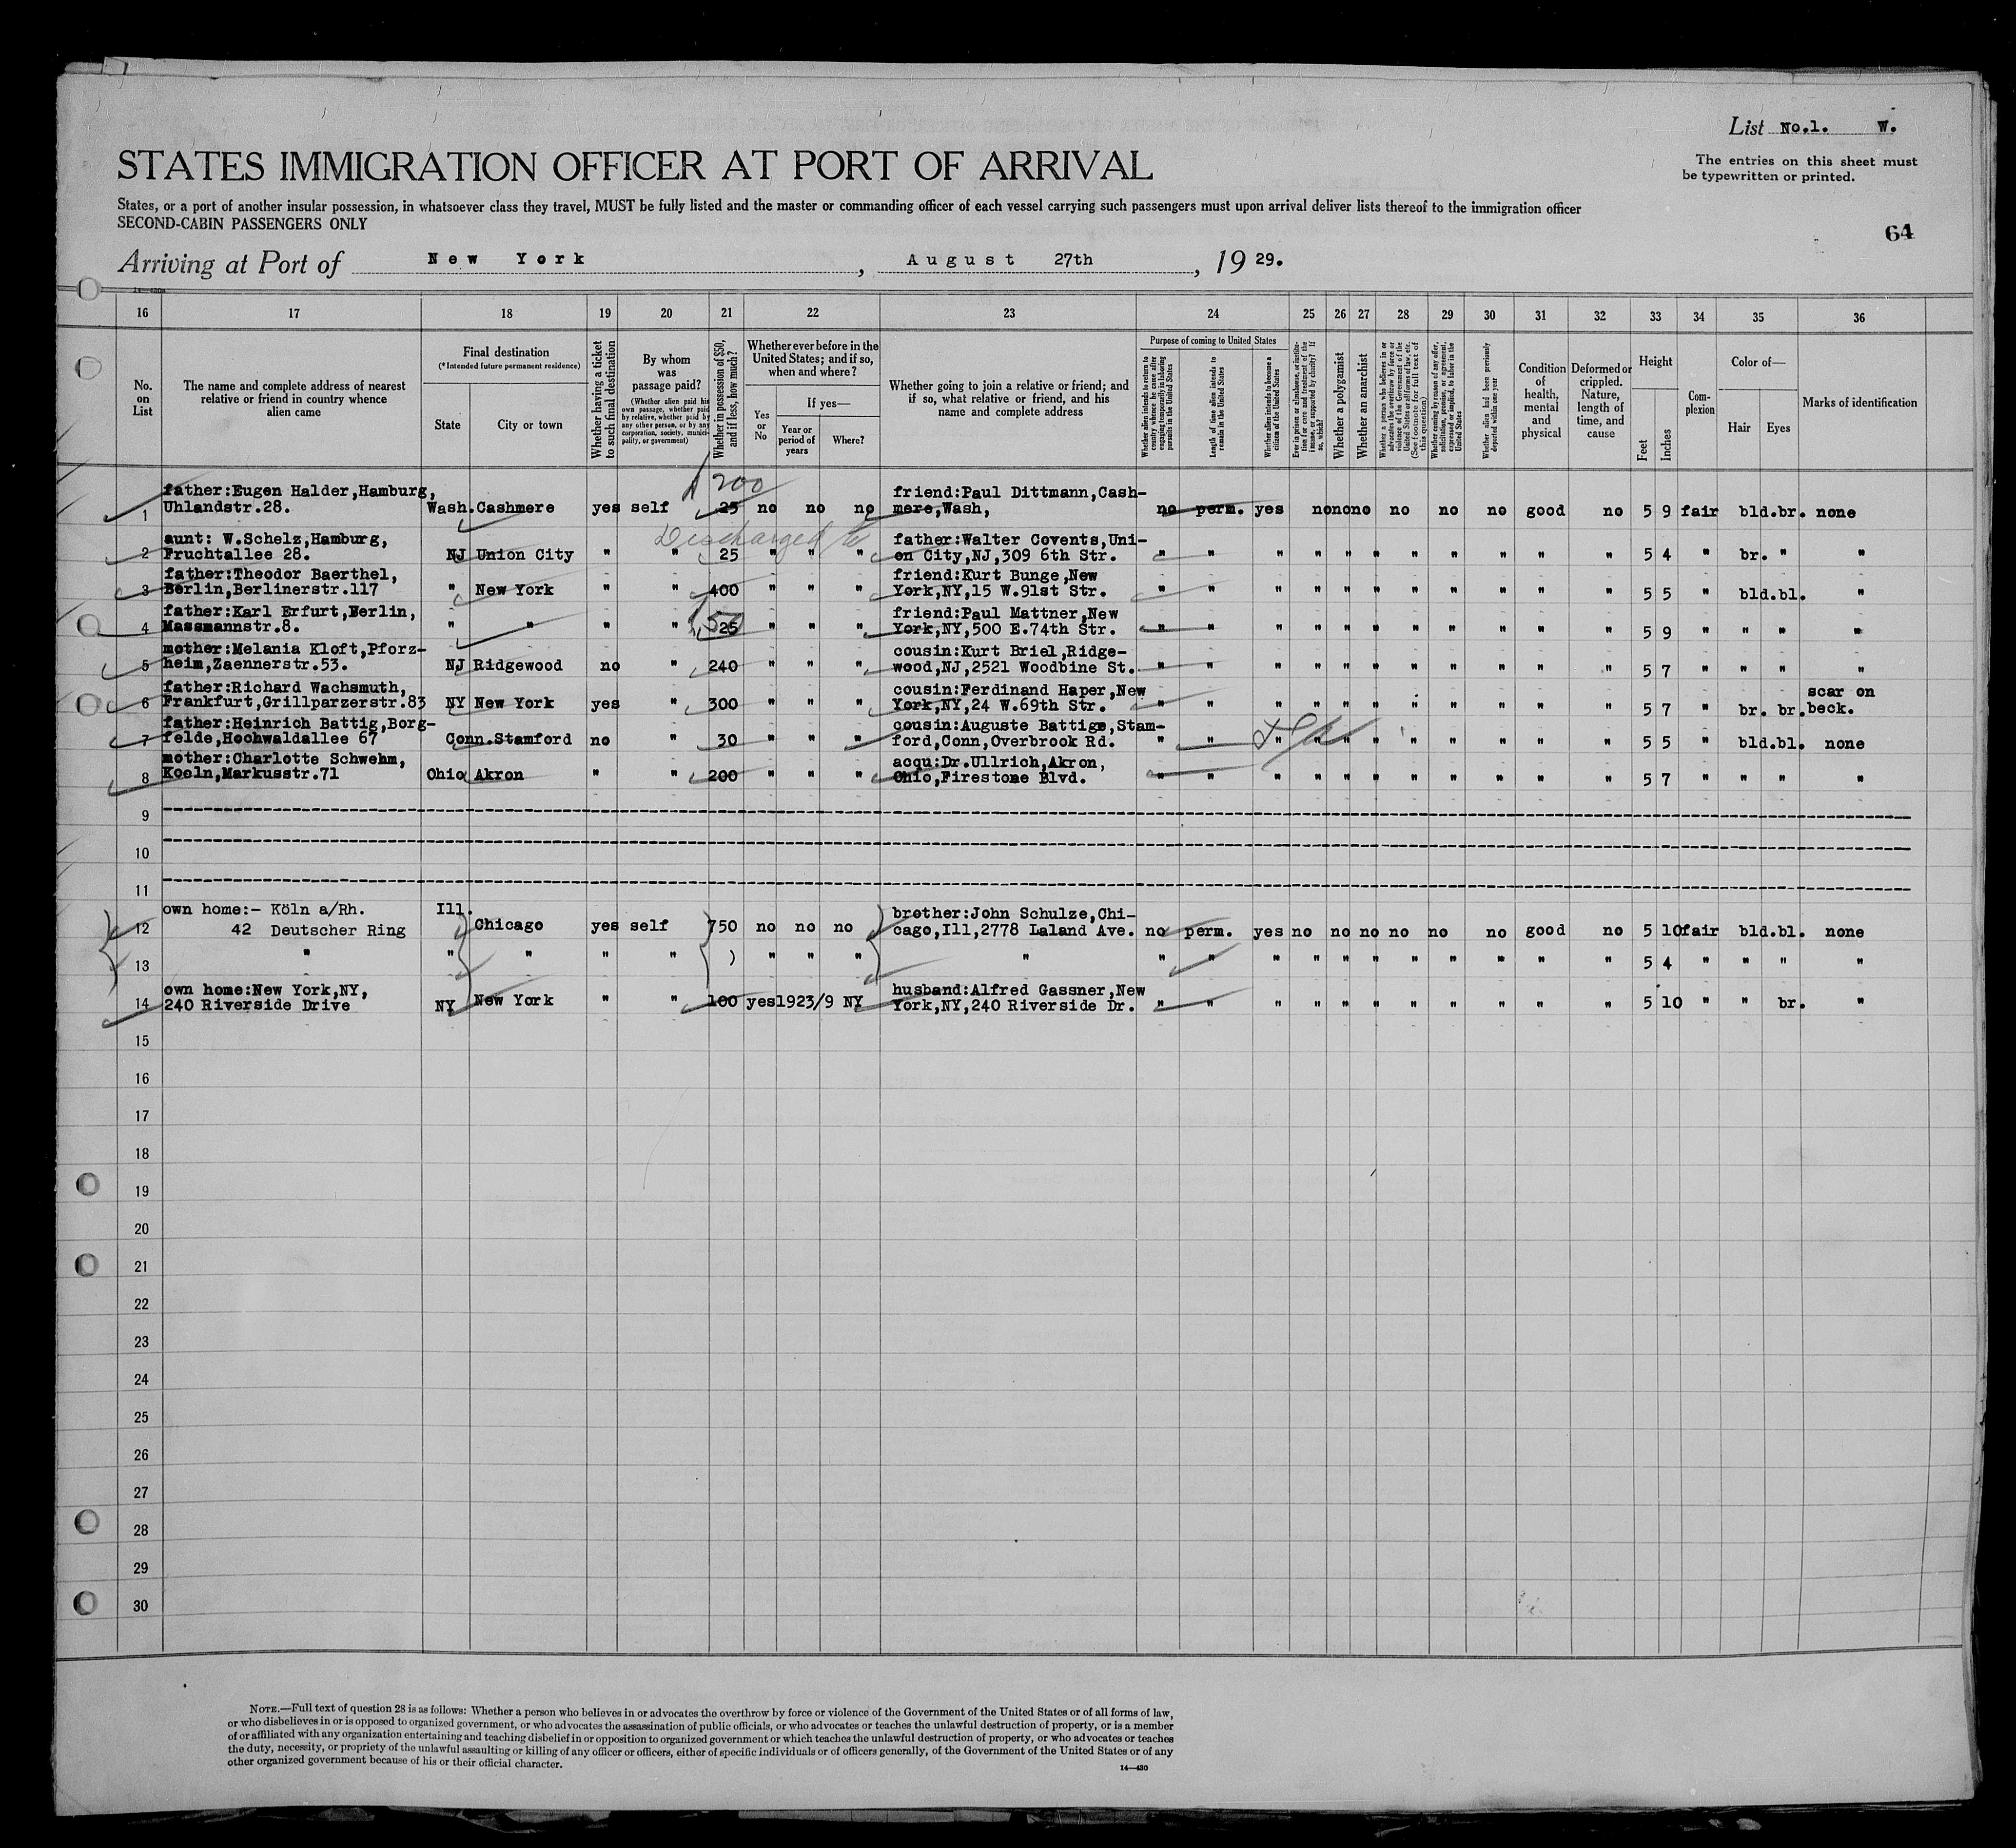 List No.1. W.
STATES IMMIGRATION OFFICER AT PORT OF ARRIVAL
The entries on this sheet must
be typewritten or printed.
States, or a port of another insular possession, in whatsoever class they travel, MUST be fully listed and the master or commanding officer of each vessel carrying such passengers must upon arrival deliver lists thereof to the immigration officer
SECOND-CABIN PASSENGERS ONLY
64
Arriving at Port of New York, August 27th, 19 29.
16 17 18 19 20 21 22 23 24 25 26 27 28 29 30 31 32 33 34 35 36
No. on List
The name and complete address of nearest relative or friend in country whence alien came
Final destination
(*Intended future permanent residence)
State
City or town
Whether having a ticket to such final destination
By whom was passage paid?
(Whether alien paid his own passage, whether paid by relative, whether paid by any other person, or by any corporation, society, municipality, or government)
Whether in possession of $50, and if less, how much?
Whether ever before in the United States; and if so, when and where?
Yes or No
If yes—
Year or period of years
Where?
Whether going to join a relative or friend; and if so, what relative or friend, and his name and complete address
Purpose of coming to United States
Whether alien intends to return to country whence he came after engaging temporarily in laboring pursuits in the United States
Length of time alien intends to remain in the United States
Whether alien intends to become a citizen of the United States
Ever in prison or almshouse, or institution for care and treatment of the insane, or supported by charity? If so, which?
Whether a polygamist
Whether an anarchist
Whether a person who believes in or advocates the overthrow by force or violence of the Government of the United States or all forms of law, etc. (See footnote for full text of this question)
Whether coming by reason of any offer, solicitation, promise, or agreement, expressed or implied, to labor in the United States
Whether alien had been previously deported within one year
Condition of health, mental and physical
Deformed or crippled. Nature, length of time, and cause
Height
Feet
Inches
Complexion
Color of—
Hair
Eyes
Marks of identification
$200
father:Eugen Halder,Hamburg, friend:Paul Dittmann,Cash-
1 Uhlandstr.28. Wash. Cashmere yes self 25 no no no mere,Wash, no perm. yes no no no no no no good no 5 9 fair bld. br. none
Discharged to
aunt: W.Schelz,Hamburg, father:Walter Covents,Uni-
2 Fruchtallee 28. NJ Union City " " 25 " " " on City,NJ,309 6th Str. " " " " " " " " " " " 5 4 " br. " "
father:Theodor Baerthel, friend:Kurt Bunge,New
3 Berlin,Berlinerstr.117 " New York " " 400 " " " York,NY,15 W.91st Str. " " " " " " " " " " " 5 5 " bld. bl. "
father:Karl Erfurt,Berlin, friend:Paul Mattner,New
4 Massmannstr.8. " " " " 25 50 " " " York,NY,500 E.74th Str. " " " " " " " " " " " 5 9 " " " "
mother:Melania Kloft,Pforz- cousin:Kurt Briel,Ridge-
5 heim,Zaennerstr.53. NJ Ridgewood no " 240 " " " wood,NJ,2521 Woodbine St. " " " " " " " " " " " 5 7 " " " "
father:Richard Wachsmuth, cousin:Ferdinand Haper,New scar on
6 Frankfurt,Grillparzerstr.83 NY New York yes " 300 " " " York,NY,24 W.69th Str. " " " " " " " " " " " 5 7 " br. br. beck.
father:Heinrich Battig,Borg- cousin:Auguste Battige,Stam-
7 felde,Hochwaldallee 67 Conn. Stamford no " 30 " " " ford,Conn,Overbrook Rd. " " " " " " " " " " " 5 5 " bld. bl. none
mother:Charlotte Schwehm, acqu:Dr.Ullrich,Akron,
8 Koeln,Markusstr.71 Ohio Akron " " 200 " " " Ohio,Firestone Blvd. " " " " " " " " " " " 5 7 " " " "
9
10
11
own home:- Köln a/Rh. Ill. brother:John Schulze,Chi-
12 42 Deutscher Ring Chicago yes self 750 no no no cago,Ill,2778 Laland Ave. no perm. yes no no no no no no good no 5 10 fair bld. bl. none
13 " " " " " ) " " " " " " " " " " " " " " " " 5 4 " " " "
own home:New York,NY, husband:Alfred Gassner,New
14 240 Riverside Drive NY New York " " 100 yes 1923/9 NY York,NY,240 Riverside Dr. " " " " " " " " " " " 5 10 " " br. "
15
16
17
18
19
20
21
22
23
24
25
26
27
28
29
30
NOTE.—Full text of question 28 is as follows: Whether a person who believes in or advocates the overthrow by force or violence of the Government of the United States or of all forms of law,
or who disbelieves in or is opposed to organized government, or who advocates the assassination of public officials, or who advocates or teaches the unlawful destruction of property, or is a member
of or affiliated with any organization entertaining and teaching disbelief in or opposition to organized government or which teaches the unlawful destruction of property, or who advocates or teaches
the duty, necessity, or propriety of the unlawful assaulting or killing of any officer or officers, either of specific individuals or of officers generally, of the Government of the United States or of any
other organized government because of his or their official character.
14—430